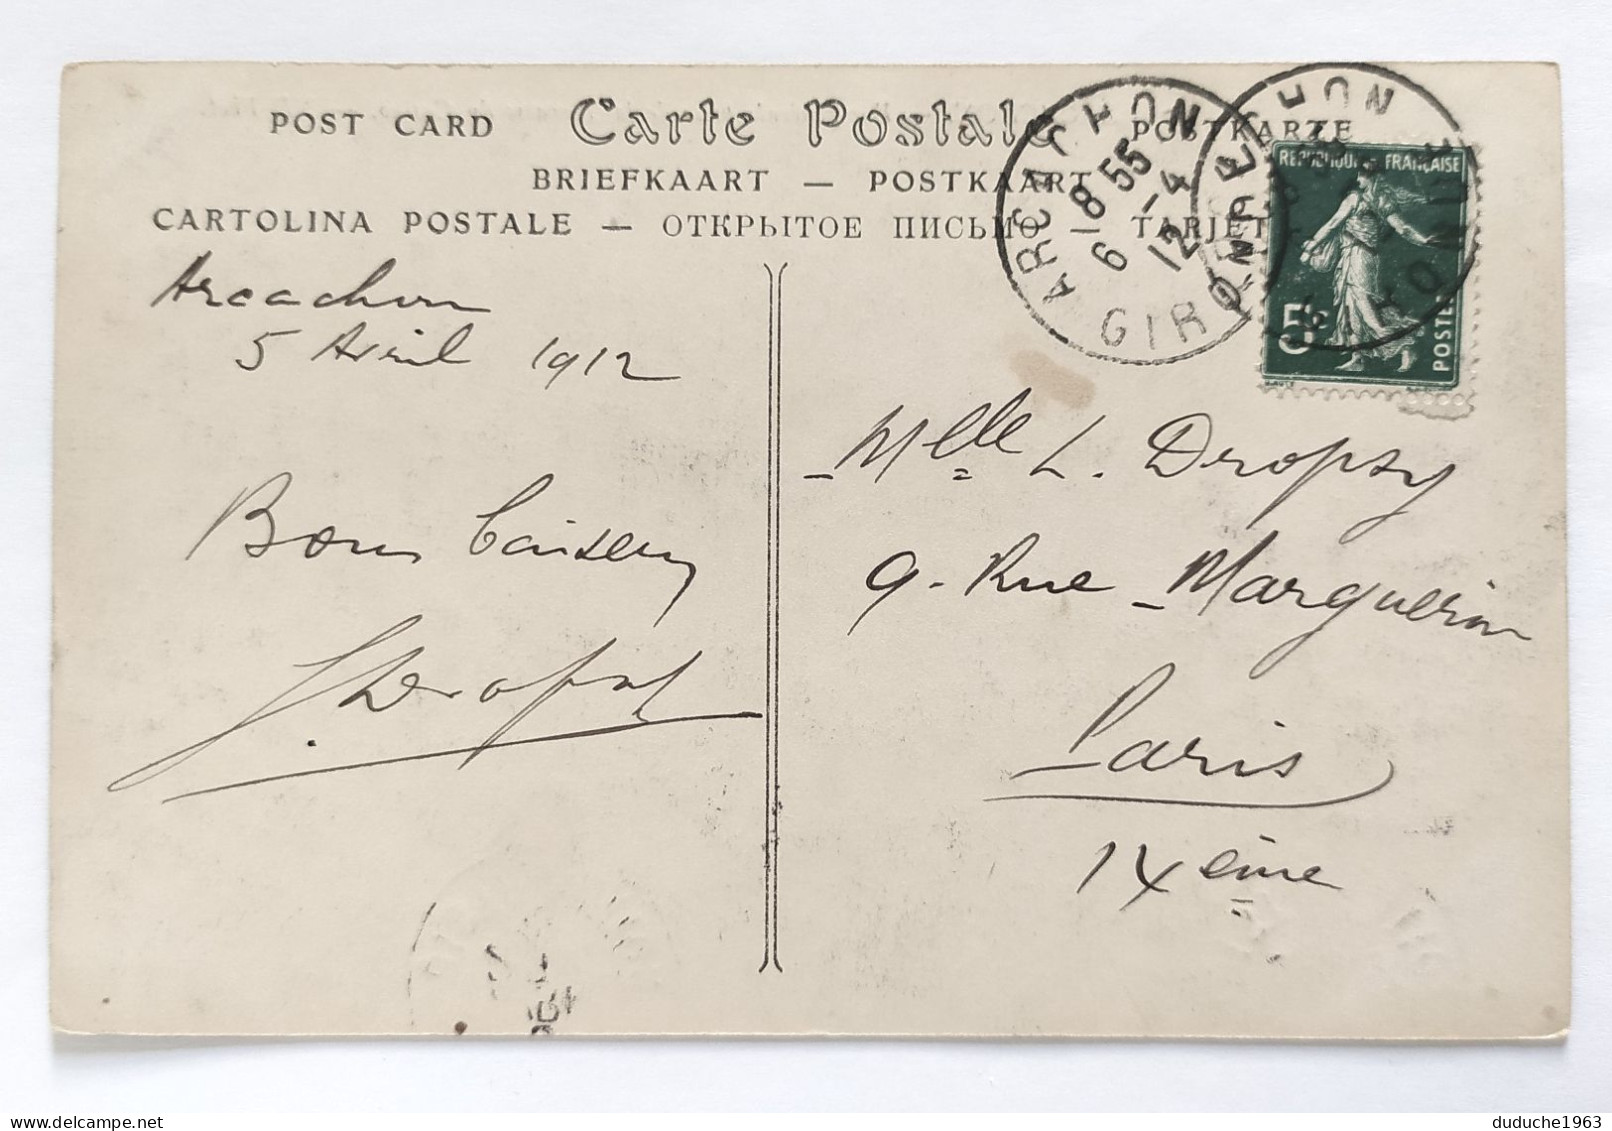 POST CARD Carte Postale POSTKARTE
BRIEFKAART — POSTKAART
CARTOLINA POSTALE — ОТКРЫТОЕ ПИСЬМО — TARJET
ARCACHON
18 55
6 - 4
12
GIRONDE
REPUBLIQUE FRANÇAISE
5c
POSTES
Arcachon
5 Avril 1912
Bons baisers
Dropsy
Mlle L. Dropsy
9. Rue Marguerin
Paris
14 ème
duduche1963